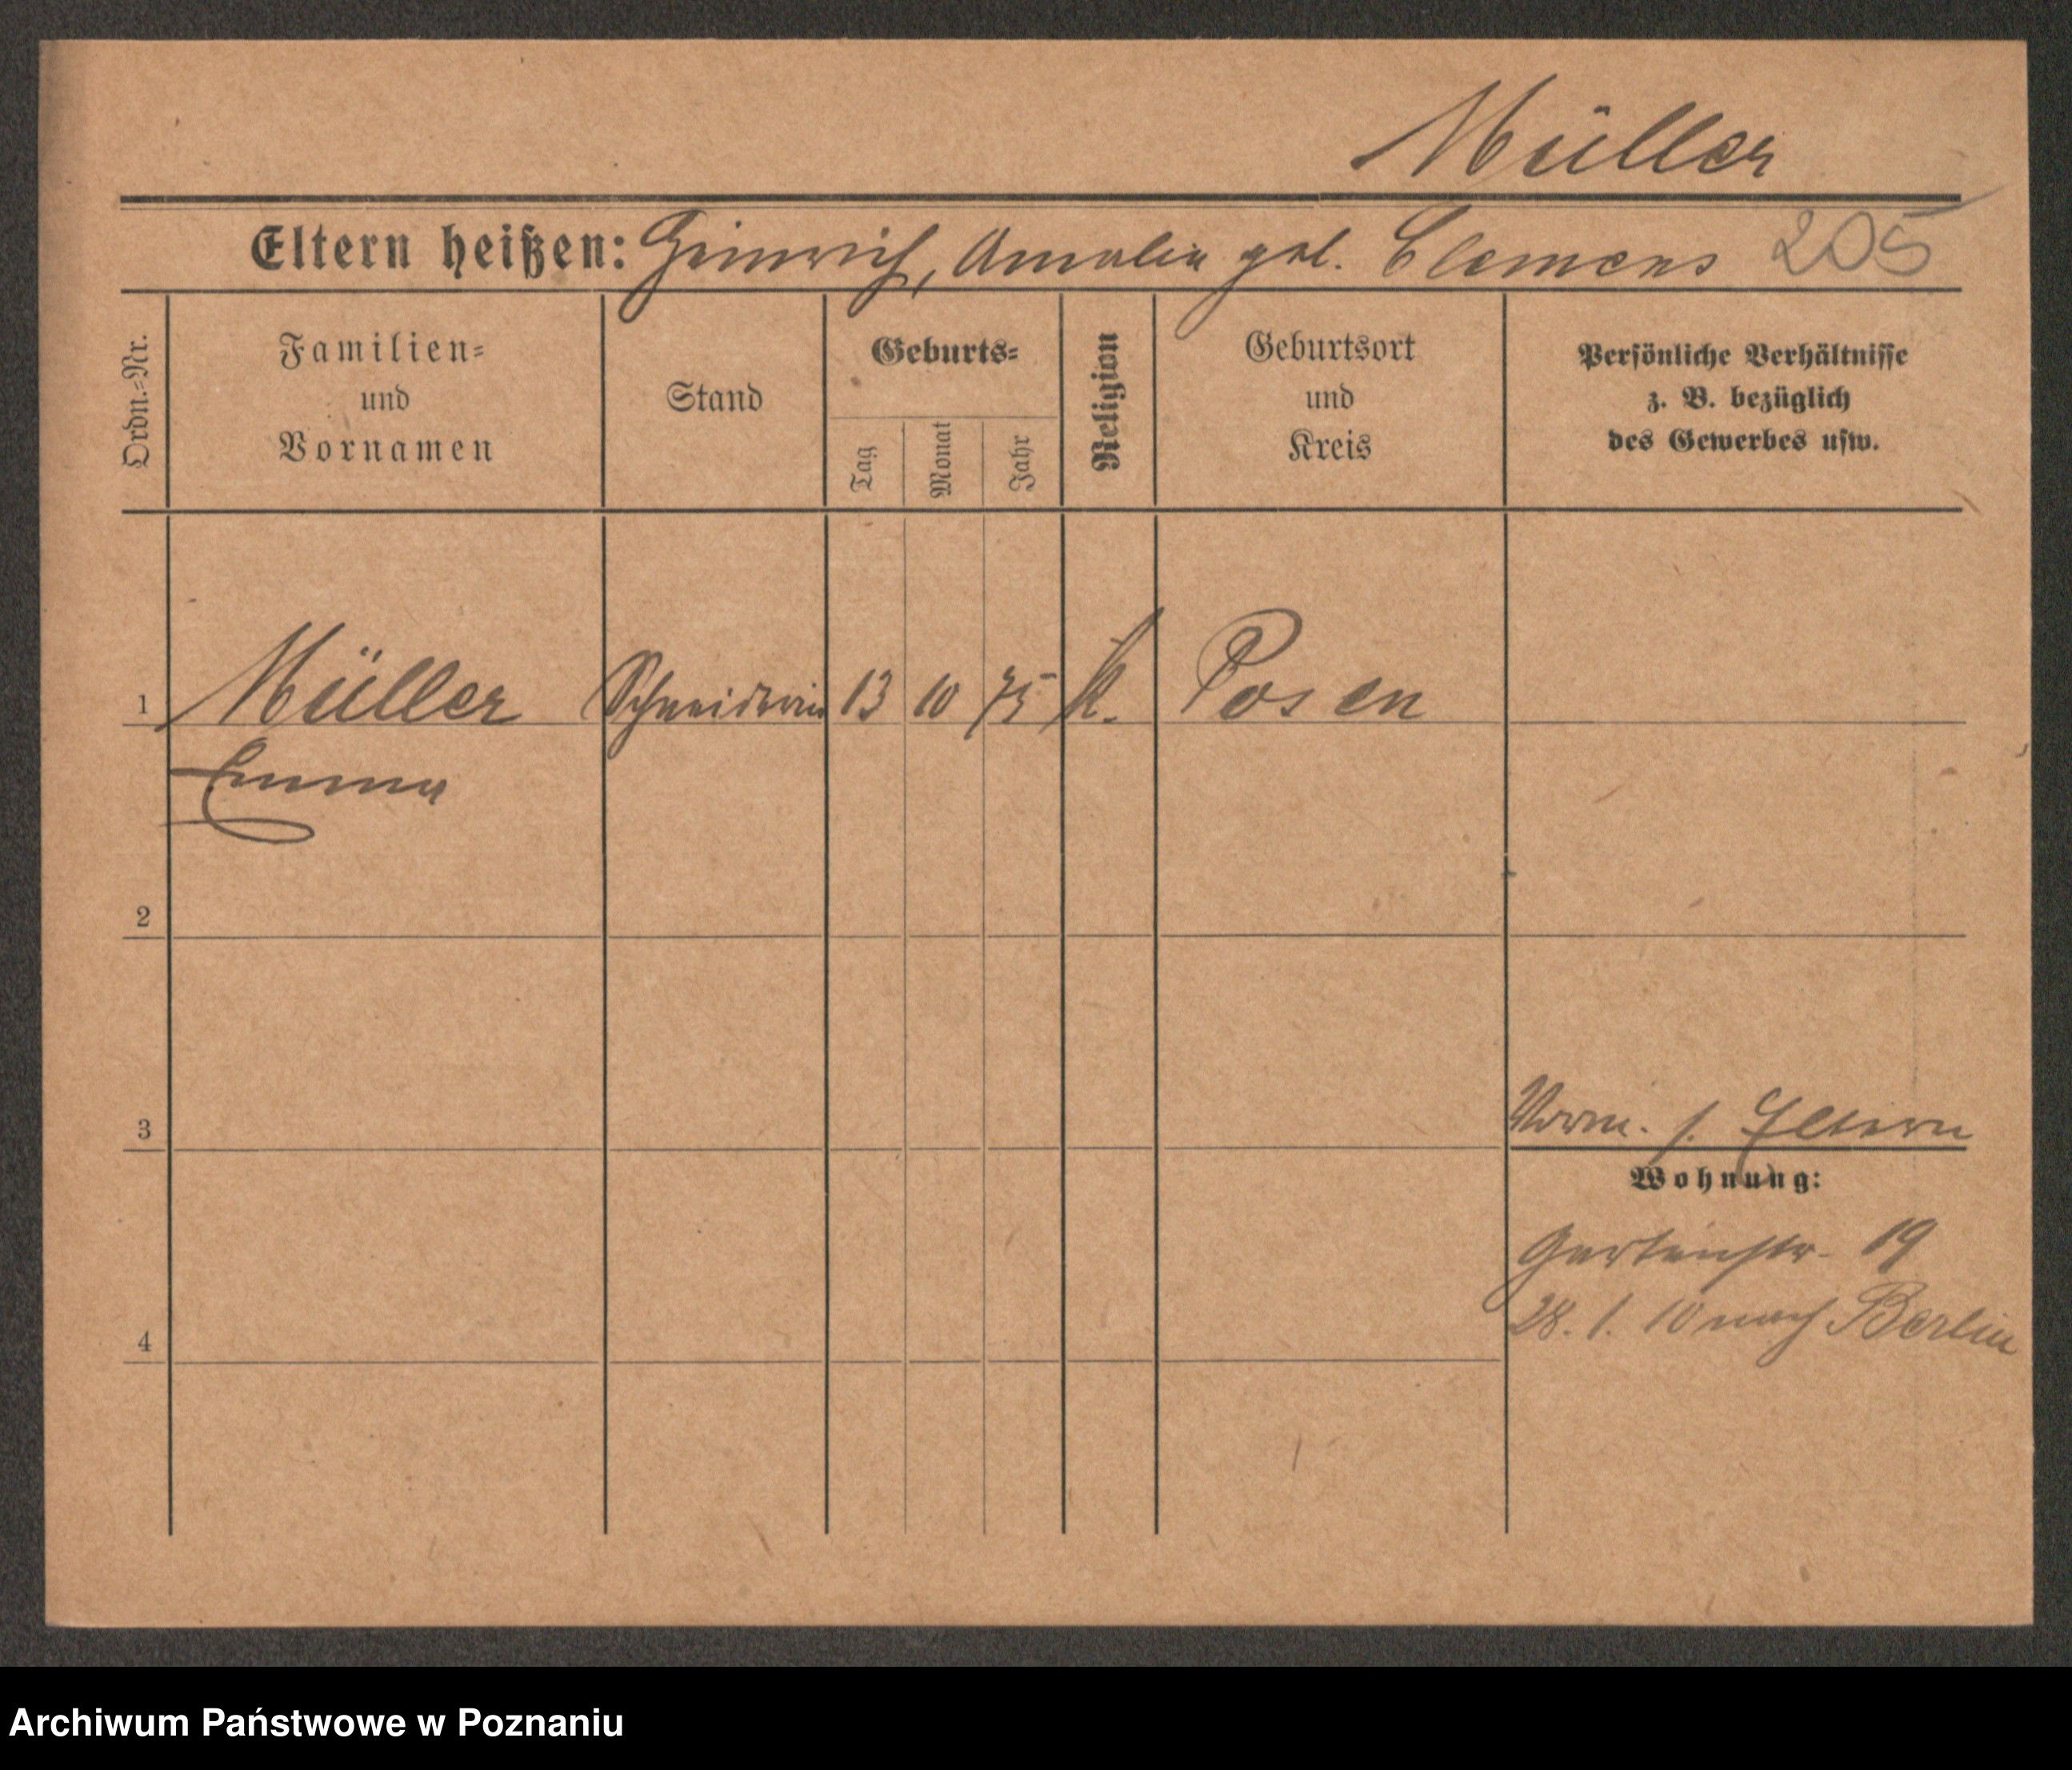 Müller
Eltern heißen: Heinrich, Amalie geb. Clemens 205
Ordn.=Nr.
Familien=
und
Vornamen
Stand
Geburts=
Tag
Monat
Jahr
Religion
Geburtsort
und
Kreis
Persönliche Verhältnisse
z. B. bezüglich
des Gewerbes usw.
1 Müller Schneiderin 13 10 75 k. Posen
Emma
2
3
Vorm. s. Eltern
Wohnung:
Gartenstr. 19
28. 1. 10 nach Berlin
4
Archiwum Państwowe w Poznaniu